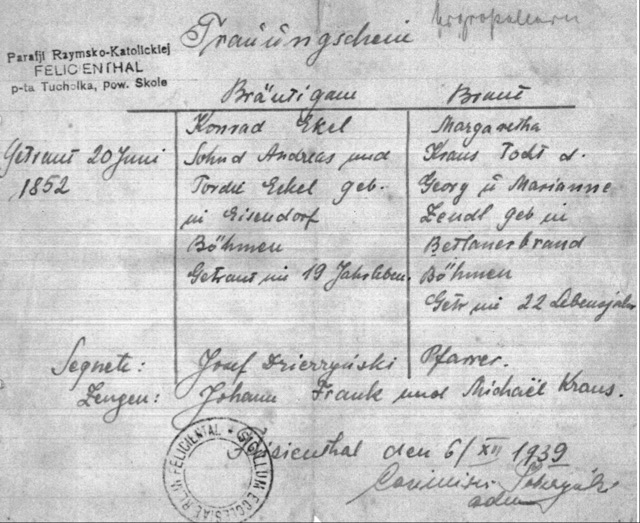 Parafji Rzymsko-Katolickiej
FELICIENTHAL
p-ta Tucholka, pow. Skole
Trauungschein
Bräutigam Braut
Getraut 20 Juni
1852
Konrad Ekel
Sohn d Andreas und
Eckel geb.
in Eisendorf
Böhmen
Getraut im 19 Jahrleben.
Margaretha
Kraus Todt d.
Georg u Marianne
Zendl geb in
Böhmen
Getr im 22 Lebensjahr
Segnete: Josef Dzierzyński Pfarrer.
Zeugen: Johann Frank und Michaël Kraus.
Felizienthal den 6/XII 1939
SIGILLUM ECCLESIAE FELICIENTAL